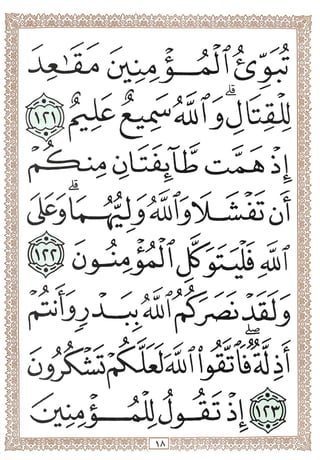 تُبَوِّئُ ٱلْمُؤْمِنِينَ مَقَـٰعِدَ
لِلْقِتَالِ ۗ وَٱللَّهُ سَمِيعٌ عَلِيمٌ ١٢١
إِذْ هَمَّت طَّآئِفَتَانِ مِنكُمْ
أَن تَفْشَلَا وَٱللَّهُ وَلِيُّهُمَا ۗ وَعَلَى
ٱللَّهِ فَلْيَتَوَكَّلِ ٱلْمُؤْمِنُونَ ١٢٢
وَلَقَدْ نَصَرَكُمُ ٱللَّهُ بِبَدْرٍ وَأَنتُمْ
أَذِلَّةٌ ۖ فَٱتَّقُوا۟ ٱللَّهَ لَعَلَّكُمْ تَشْكُرُونَ
١٢٣ إِذْ تَقُولُ لِلْمُؤْمِنِينَ
١٨